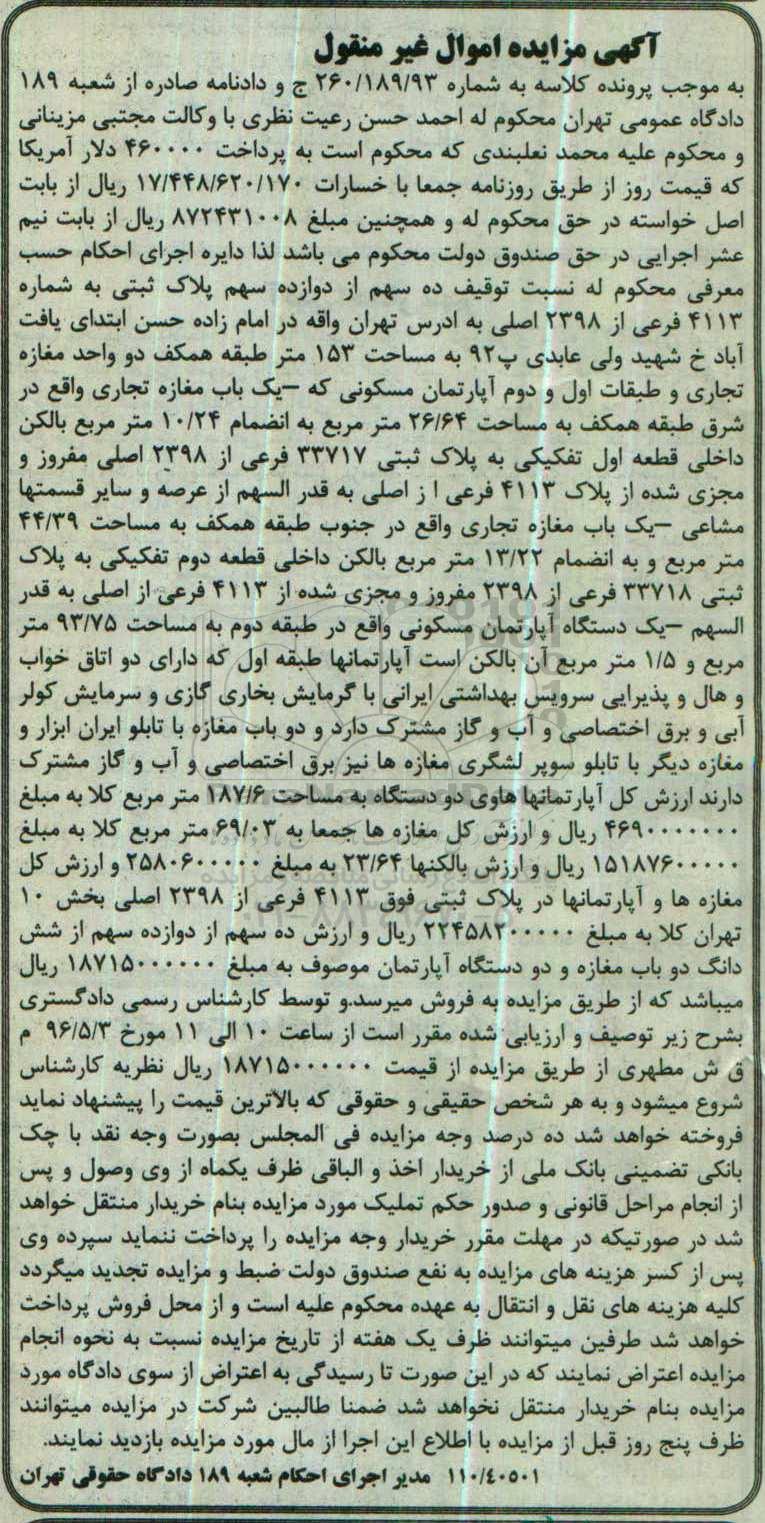 آگهی مزایده اموال غیر منقول
به موجب پرونده کلاسه به شماره ۲۶۰/۱۸۹/۹۳ ج و دادنامه صادره از شعبه ۱۸۹
دادگاه عمومی تهران محکوم له احمد حسن رعیت نظری با وکالت مجتبی مزینانی
و محکوم علیه محمد نعلبندی که محکوم است به پرداخت ۴۶۰۰۰۰ دلار آمریکا
که قیمت روز از طریق روزنامه جمعا با خسارات ۱۷/۴۴۸/۶۲۰/۱۷۰ ریال از بابت
اصل خواسته در حق محکوم له و همچنین مبلغ ۸۷۲۴۳۱۰۰۸ ریال از بابت نیم
عشر اجرایی در حق صندوق دولت محکوم می باشد لذا دایره اجرای احکام حسب
معرفی محکوم له نسبت توقیف ده سهم از دوازده سهم پلاک ثبتی به شماره
۴۱۱۳ فرعی از ۲۳۹۸ اصلی به ادرس تهران واقه در امام زاده حسن ابتدای یافت
آباد خ شهید ولی عابدی پ۹۲ به مساحت ۱۵۳ متر طبقه همکف دو واحد مغازه
تجاری و طبقات اول و دوم آپارتمان مسکونی که –یک باب مغازه تجاری واقع در
شرق طبقه همکف به مساحت ۲۶/۶۴ متر مربع به انضمام ۱۰/۲۴ متر مربع بالکن
داخلی قطعه اول تفکیکی به پلاک ثبتی ۳۳۷۱۷ فرعی از ۲۳۹۸ اصلی مفروز و
مجزی شده از پلاک ۴۱۱۳ فرعی ا ز اصلی به قدر السهم از عرصه و سایر قسمتها
مشاعی –یک باب مغازه تجاری واقع در جنوب طبقه همکف به مساحت ۴۴/۳۹
متر مربع و به انضمام ۱۳/۲۲ متر مربع بالکن داخلی قطعه دوم تفکیکی به پلاک
ثبتی ۳۳۷۱۸ فرعی از ۲۳۹۸ مفروز و مجزی شده از ۴۱۱۳ فرعی از اصلی به قدر
السهم –یک دستگاه آپارتمان مسکونی واقع در طبقه دوم به مساحت ۹۳/۷۵ متر
مربع و ۱/۵ متر مربع آن بالکن است آپارتمانها طبقه اول که دارای دو اتاق خواب
و هال و پذیرایی سرویس بهداشتی ایرانی با گرمایش بخاری گازی و سرمایش کولر
آبی و برق اختصاصی و آب و گاز مشترک دارد و دو باب مغازه با تابلو ایران ابزار و
مغازه دیگر با تابلو سوپر لشگری مغازه ها نیز برق اختصاصی و آب و گاز مشترک
دارند ارزش کل آپارتمانها هاوی دو دستگاه به مساحت ۱۸۷/۶ متر مربع کلا به مبلغ
۴۶۹۰۰۰۰۰۰۰ ریال و ارزش کل مغازه ها جمعا به ۶۹/۰۳ متر مربع کلا به مبلغ
۱۵۱۸۷۶۰۰۰۰۰ ریال و ارزش بالکنها ۲۳/۶۴ به مبلغ ۲۵۸۰۶۰۰۰۰۰ و ارزش کل
مغازه ها و آپارتمانها در پلاک ثبتی فوق ۴۱۱۳ فرعی از ۲۳۹۸ اصلی بخش ۱۰
تهران کلا به مبلغ ۲۲۴۵۸۲۰۰۰۰۰ ریال و ارزش ده سهم از دوازده سهم از شش
دانگ دو باب مغازه و دو دستگاه آپارتمان موصوف به مبلغ ۱۸۷۱۵۰۰۰۰۰۰ ریال
میباشد که از طریق مزایده به فروش میرسد.و توسط کارشناس رسمی دادگستری
بشرح زیر توصیف و ارزیابی شده مقرر است از ساعت ۱۰ الی ۱۱ مورخ ۹۶/۵/۳ م
ق ش مطهری از طریق مزایده از قیمت ۱۸۷۱۵۰۰۰۰۰۰ ریال نظریه کارشناس
شروع میشود و به هر شخص حقیقی و حقوقی که بالاترین قیمت را پیشنهاد نماید
فروخته خواهد شد ده درصد وجه مزایده فی المجلس بصورت وجه نقد با چک
بانکی تضمینی بانک ملی از خریدار اخذ و الباقی ظرف یکماه از وی وصول و پس
از انجام مراحل قانونی و صدور حکم تملیک مورد مزایده بنام خریدار منتقل خواهد
شد در صورتیکه در مهلت مقرر خریدار وجه مزایده را پرداخت ننماید سپرده وی
پس از کسر هزینه های مزایده به نفع صندوق دولت ضبط و مزایده تجدید میگردد
کلیه هزینه های نقل و انتقال به عهده محکوم علیه است و از محل فروش پرداخت
خواهد شد طرفین میتوانند ظرف یک هفته از تاریخ مزایده نسبت به نحوه انجام
مزایده اعتراض نمایند که در این صورت تا رسیدگی به اعتراض از سوی دادگاه مورد
مزایده بنام خریدار منتقل نخواهد شد ضمنا طالبین شرکت در مزایده میتوانند
ظرف پنج روز قبل از مزایده با اطلاع این اجرا از مال مورد مزایده بازدید نمایند.
۱۱۰/٤۰۵۰۱ مدیر اجرای احکام شعبه ۱۸۹ دادگاه حقوقی تهران